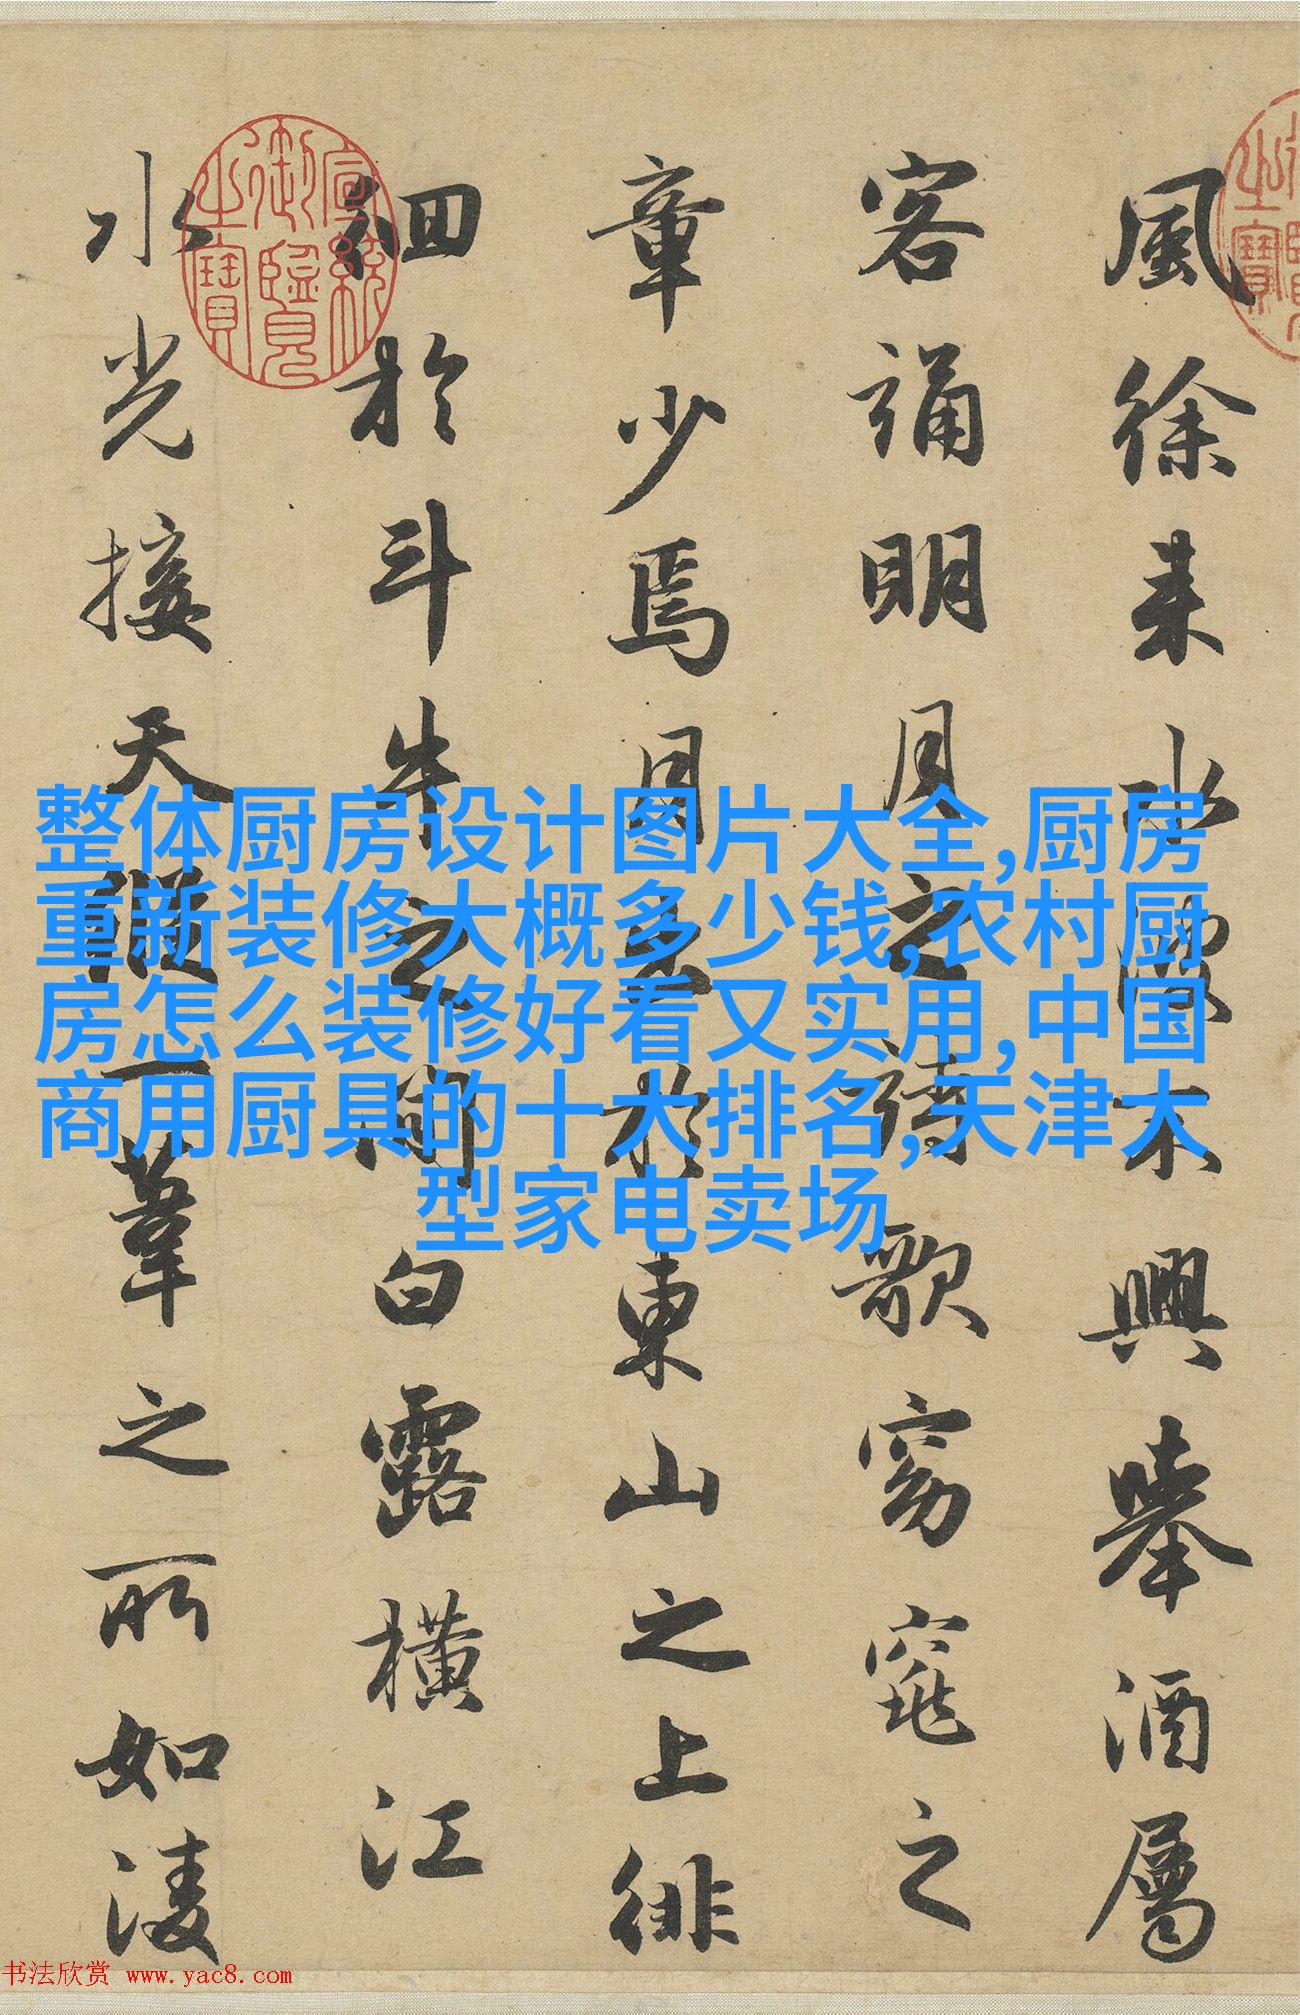 風徐来水波不興舉酒屬
客誦明月之詩歌窈窕之
章少焉月出於東山之上徘
徊於斗牛之間白露橫江
水光接天縱一葦之所如淩
宣統御覽之寶
整体厨房设计图片大全,厨房
重新装修大概多少钱,农村厨
房怎么装修好看又实用,中国
商用厨具的十大排名,天津大
型家电卖场
书法欣赏 www.yac8.com